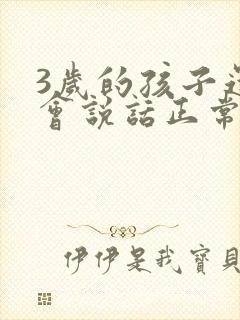 3歲的孩子還
會說話正常
伊伊是我寶貝